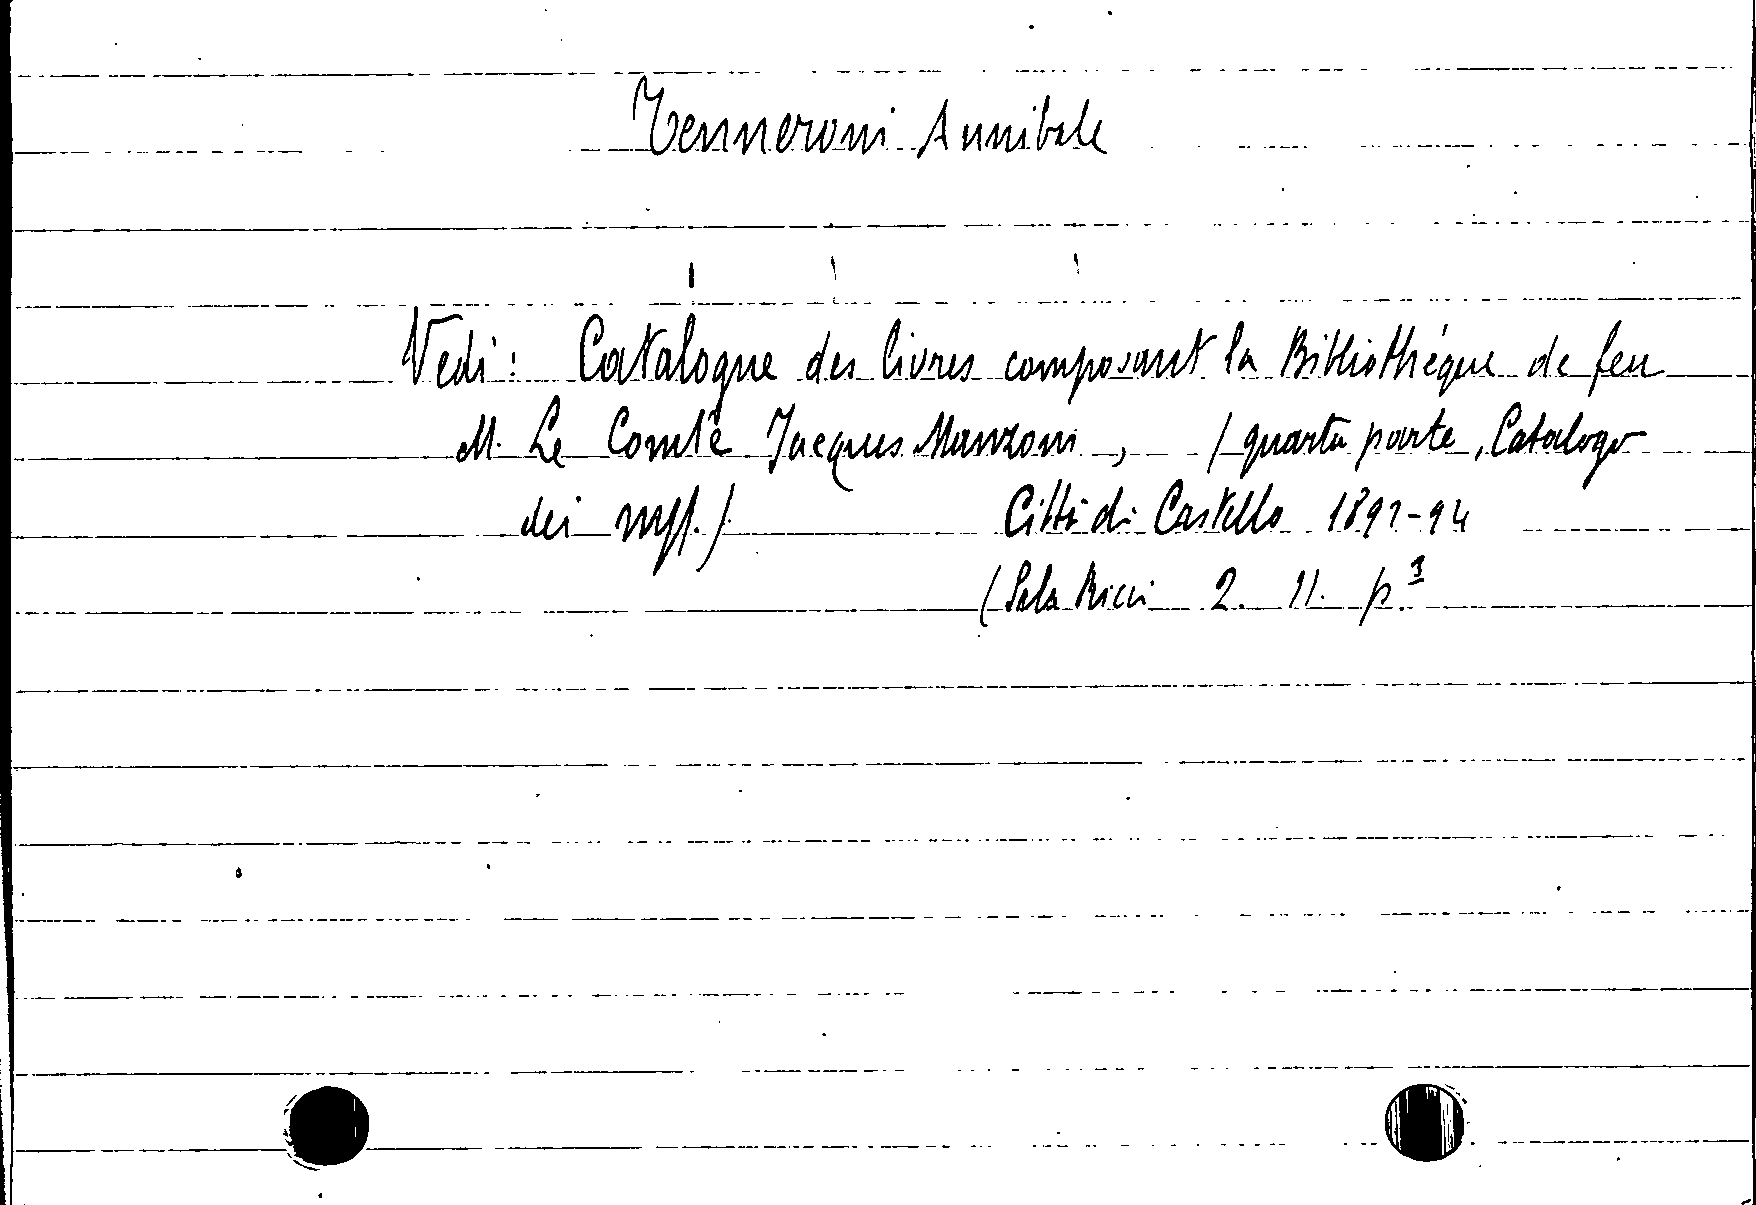 Tenneroni Annibale
Vedi: Catalogue des livres composant la Bibliothéque de feu
M. Le Comte Jacques Manzoni, (quarta parte, Catalogo
dei mss.).
Città di Castello 1892-94
(Sala Ricci 2. 11. p.³